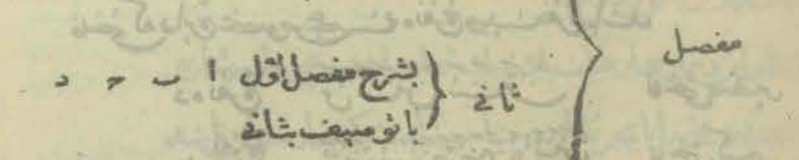 مفصل
ثانی
بشرح مفصل اول ا ب ح د
با توصیف ثانی